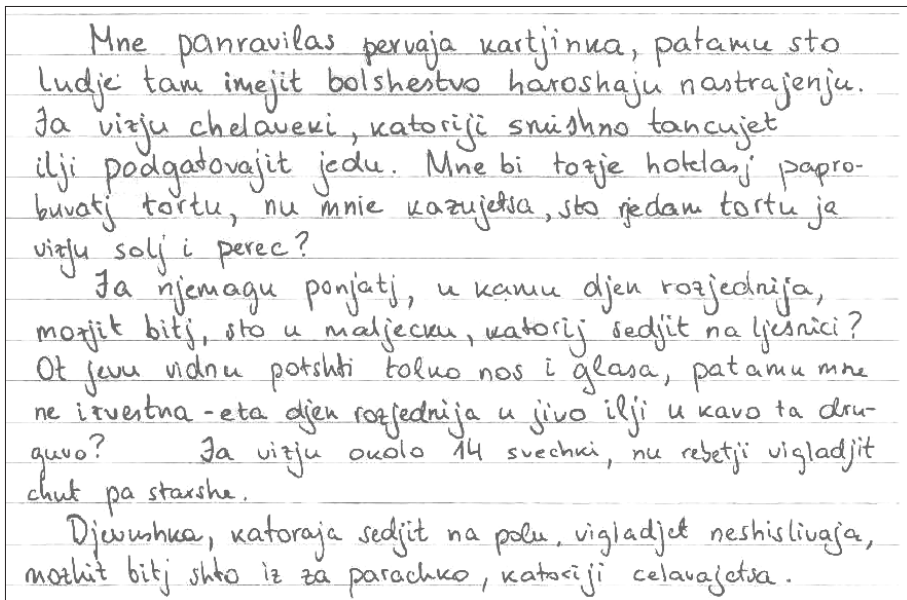 Mne panravilas pervaja kartjinka, patamu sto
ludje tam imejit bolshestvo haroshaju nastrajenju.
Ja vizju chelaveki, katoriji smishno tancujet
ilji podgatovajit jedu. Mne bi tozje hotelasj papro-
buvatj tortu, nu mnie kazujetsa, sto rjedam tortu ja
vizju solj i perec?
Ja njemagu ponjatj, u kamu djen rozjednija,
mozjit bitj, sto u maljecku, katorij sedjit na ljesnici?
Ot jevu vidnu potshti tolko nos i glasa, patamu mne
ne izvestna - eta djen rozjednija u jivo ilji u kavo ta dru-
guvo? Ja vizju okolo 14 svechki, nu rebetji vigladjit
chut pa starshe.
Djevushka, katoraja sedjit na polu, vigladjet neshislivaja,
mozhit bitj shto iz za parachko, katoriji celavajetsa.